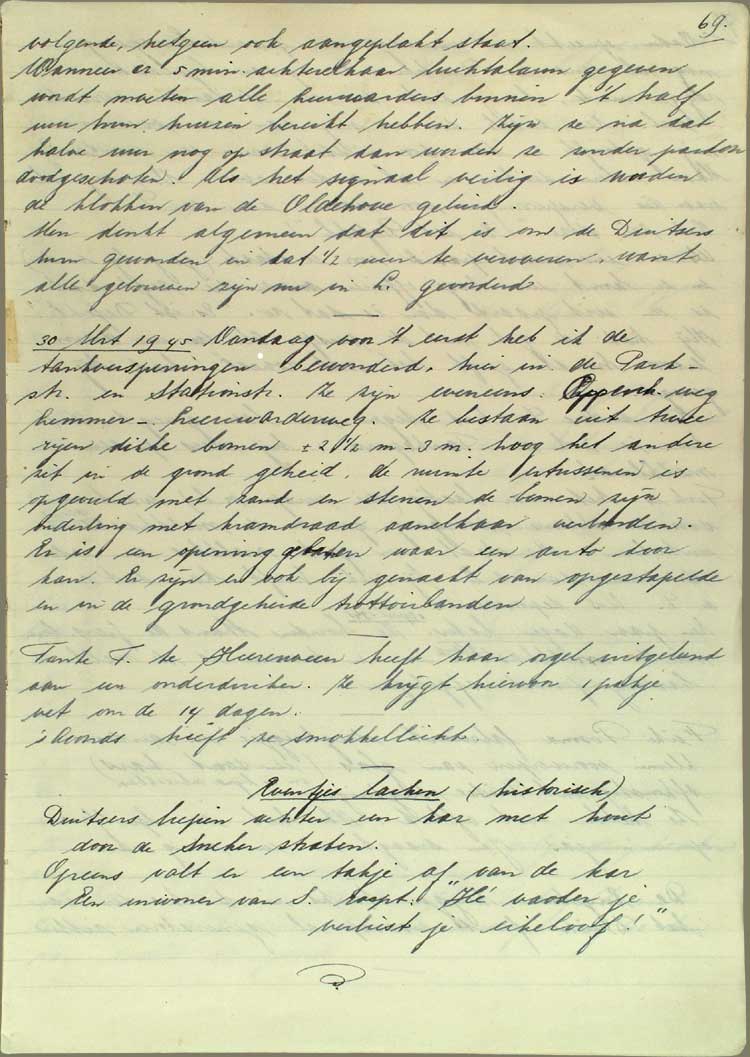 69.
volgende, hetgeen ook aangeplakt staat.
Wanneer er 5 min. achterelkaar luchtalarm gegeven
wordt moeten alle Leeuwarders binnen 't half
uur hun huizen bereikt hebben. Zijn ze na dat
halve uur nog op straat dan worden ze zonder pardon
doodgeschoten. Als het signaal veilig is worden
de klokken van de Oldehove geluid.
Men denkt algemeen dat dit is om de Duitsers
hun gewonden in dat 1/2 uur te vervoeren, want
alle gebouwen zijn nu in L. gevorderd
30 Mrt 1945 Vandaag voor 't eerst heb ik de
tankversperringen bewonderd, hier in de Park-
str. en Stationstr. Ze zijn eveneens weg
Lemmer- Leeuwarderweg. Ze bestaan uit twee
rijen dikke bomen ± 2 1/2 m - 3 m. hoog het andere
zit in de grond geheid, de ruimte ertussenen is
opgevuld met zand en stenen de bomen zijn
onderling met kramdraad aanelkaar verbonden.
Er is een opening gelaten waar een auto door
kan. Er zijn er ook bij gemaakt van opgestapelde
en in de grondgeheide trottoirbanden
Tante F. te Heerenveen heeft haar orgel uitgeleend
aan een onderduiker. Ze krijgt hiervoor 1 pakje
vet om de 14 dagen.
's Avonds heeft ze smokkellicht.
Eventjes lachen (historisch)
Duitsers liepen achter een kar met hout
door de Sneker straten.
Opeens valt er een takje af van de kar
Een inwoner van S. roept: "Hé vader je
verliest je eikeloof!"